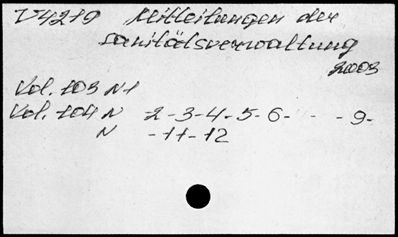 V4219 Mitteilungen der
Sanitätsverwaltung
2003
Vol. 103 N1
Vol. 104 N -2-3-4-5-6- - -9-
N -11-12